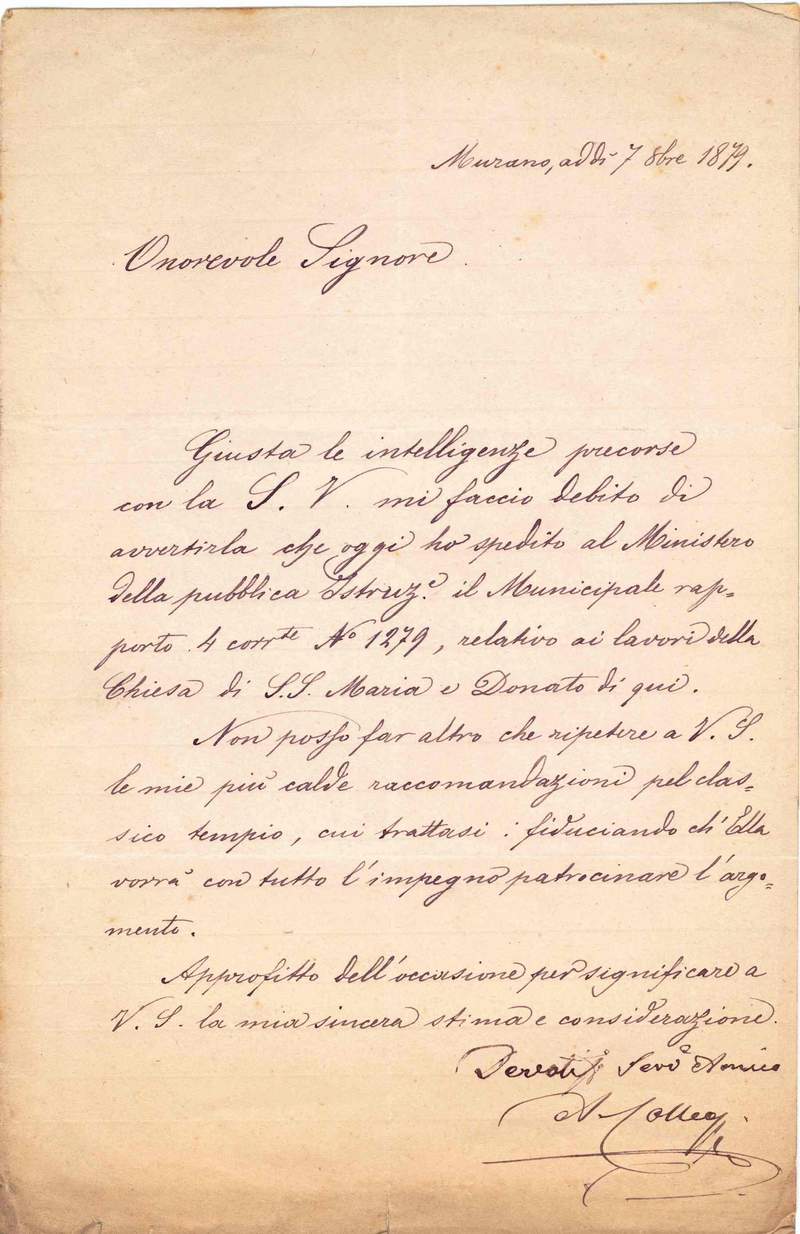 Murano, addì 7 8bre 1879.
Onorevole Signore
Giusta le intelligenze precorse
con la S. V. mi faccio debito di
avvertirla che oggi ho spedito al Ministero
della pubblica Istruz.e il Municipale rap=
porto 4 corrte No 1279, relativo ai lavori della
Chiesa di S.S. Maria e Donato di qui.
Non posso far altro che ripetere a V. S.
le mie più calde raccomandazioni pel clas=
sico tempio, cui trattasi: fiduciando ch'Ella
vorrà con tutto l'impegno patrocinare l'argo=
mento.
Approfitto dell'occasione per significare a
V. S. la mia sincera stima e considerazione.
Servo Amico
A